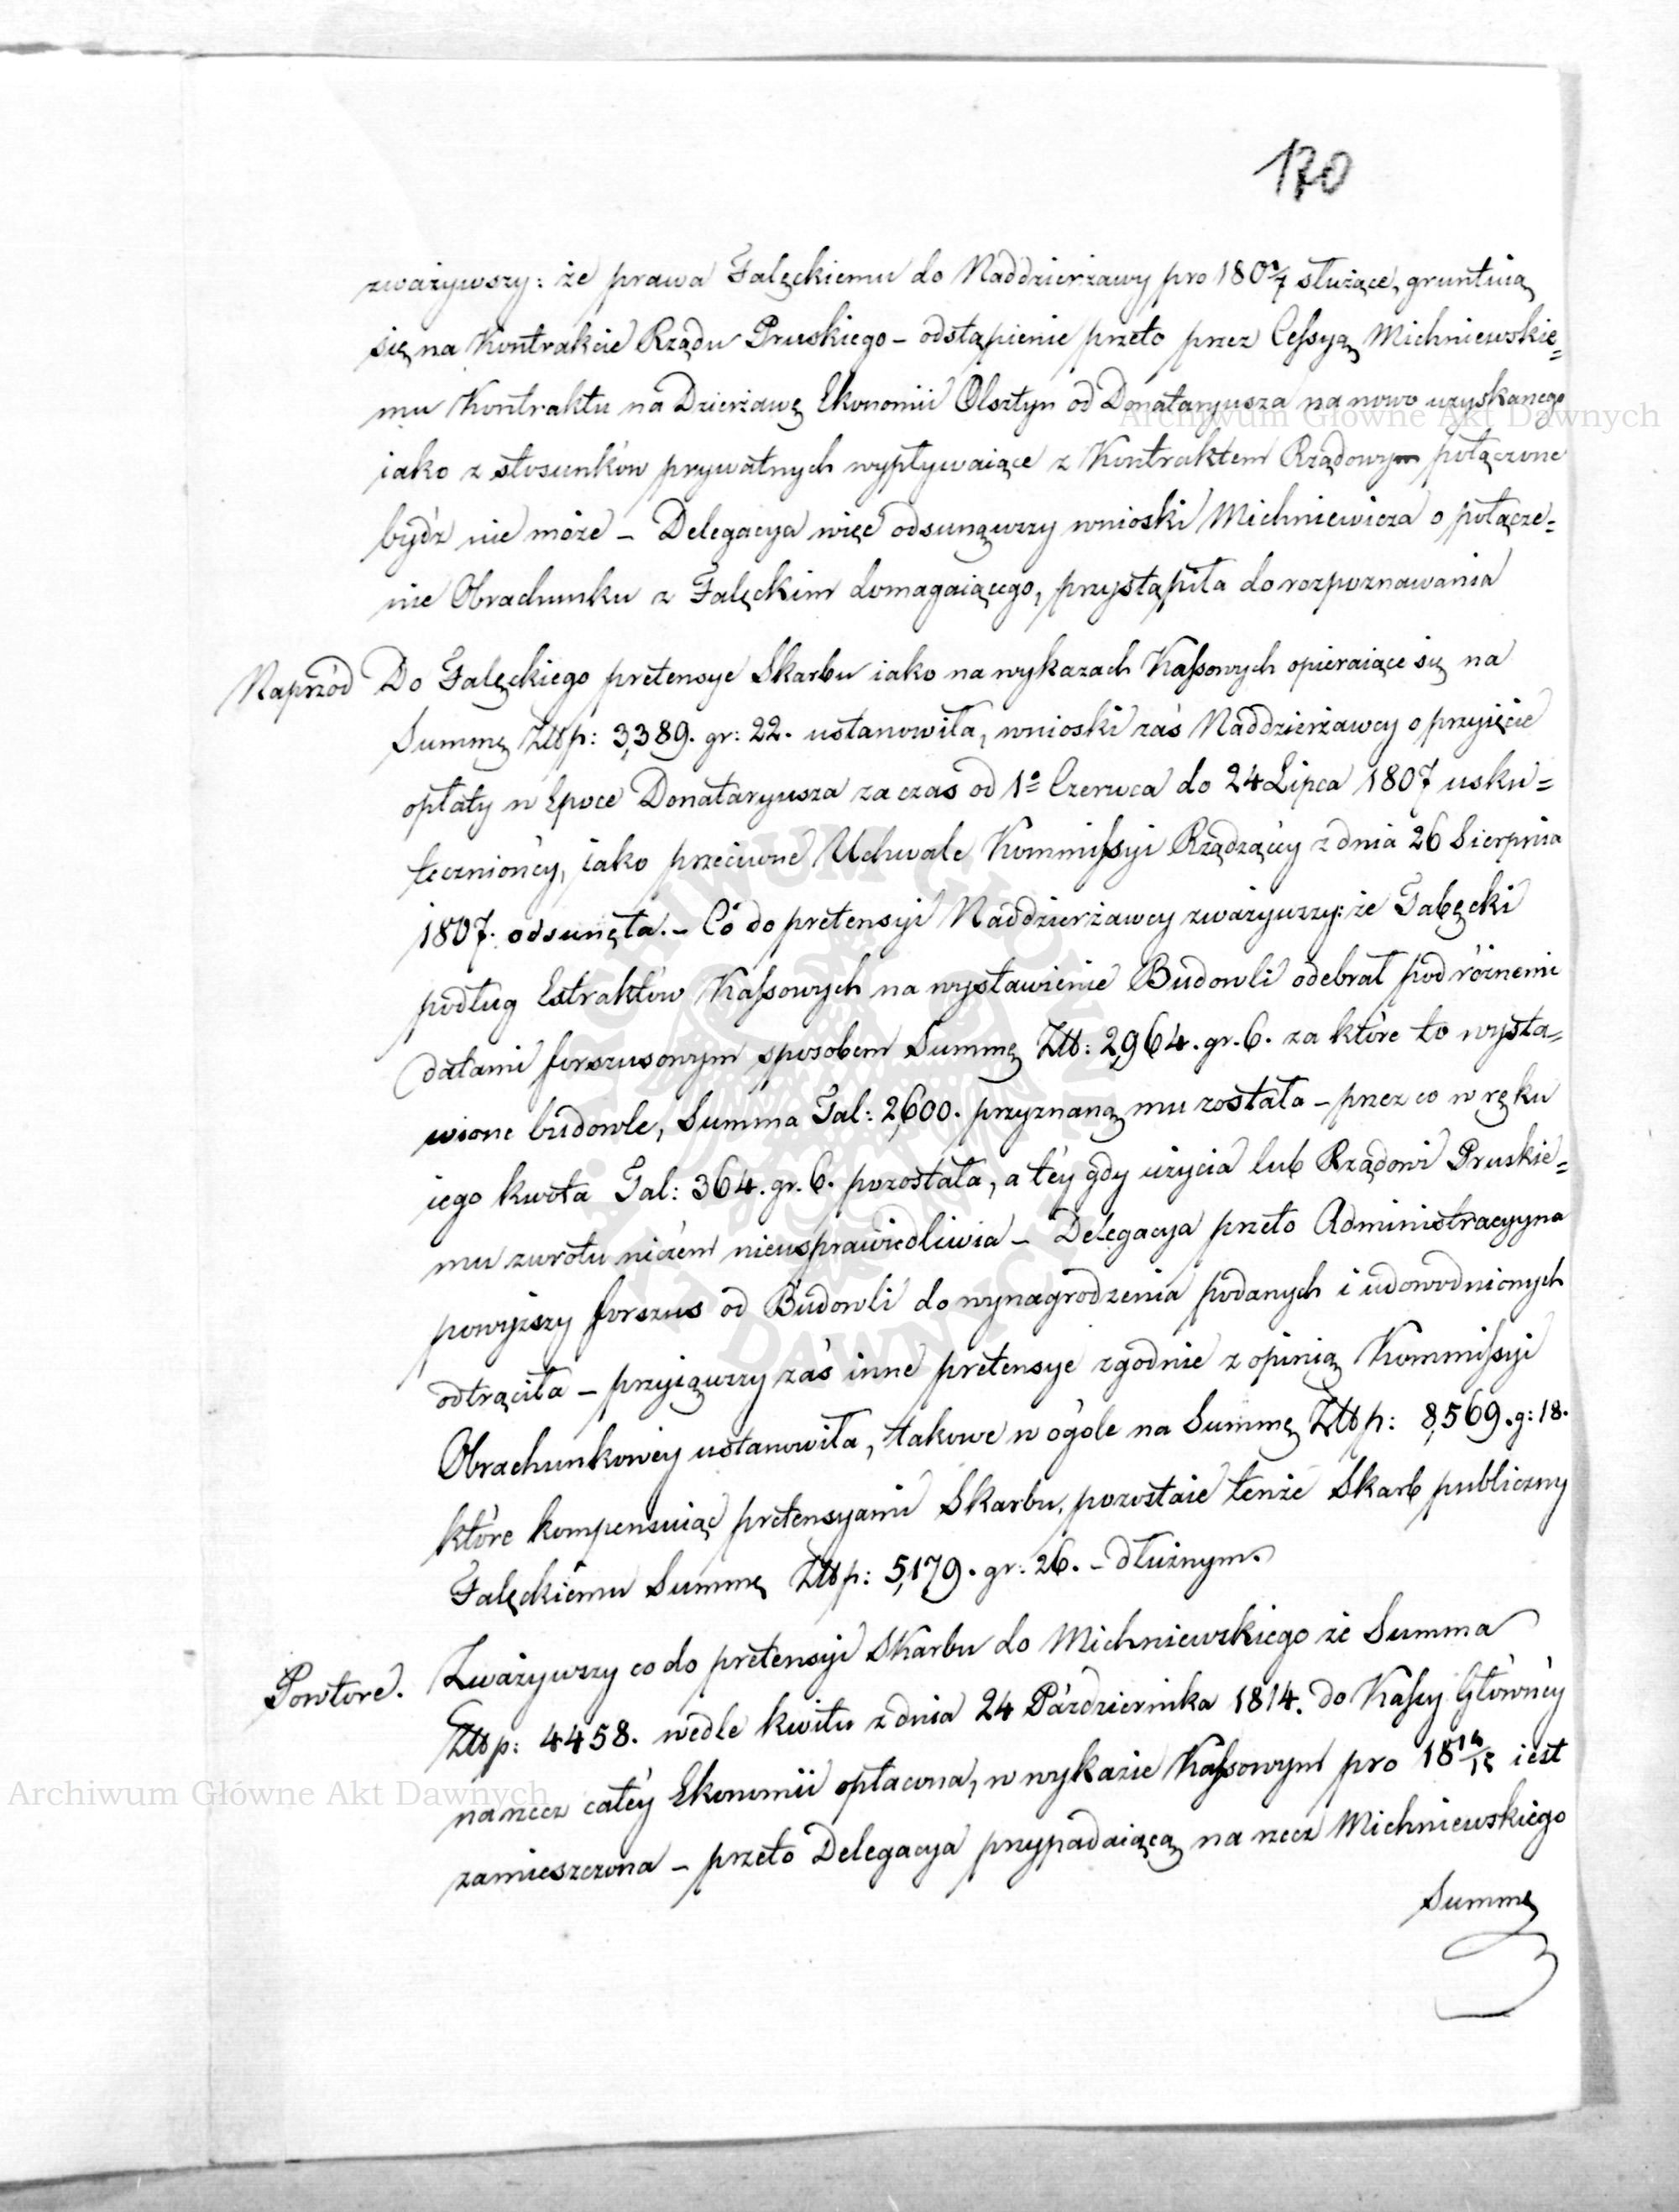 170
zważywszy: że prawa Falęckiemu do Naddzierżawy pro 180 6/7 służące, gruntuią
się na Kontrakcie Rządu Pruskiego – odstąpienie przeto przez Cessyą Michniewskie=
mu Kontraktu na Dzierżawę Ekonomii Olsztyn od Donataryusza na nowo uzyskanego
iako z stosunków prywatnych wypływaiące z Kontraktem Rządowym połączone
bydź nie może – Delegacya więc odsunąwszy wnioski Michniewicza o połącze=
nie Obrachunku z Falęckim domagaiącego, przystąpiła do rozpoznawania
Naprzód Do Falęckiego pretensye Skarbu iako na wykazach Kassowych opieraiące się na
Summę Złłp: 3,389. gr: 22. ustanowiła, wnioski zaś Naddzierżawcy o przyięcie
opłaty w Epoce Donataryusza za czas od 1o Czerwca do 24 Lipca 1807 usku=
tecznioney, iako przeciwne Uchwale Kommissyi Rządzącey z dnia 26 Sierpnia
1807. odsunęła. – Co do pretensyi Naddzierżawcy zważywszy: że Falęcki
podług Extraktów Kassowych na wystawienie Budowli odebrał pod różnemi
datami forszusowym sposobem Summę Złł: 2,964. gr. 6. za które to wysta=
wione budowle, Summa Tal: 2,600. przyznaną mu została – przez co w ręku
iego kwota Tal: 364. gr. 6. pozostała, a tey gdy użycia lub Rządowi Pruskie=
mu zwrotu niczem nieusprawiedliwia – Delegacya przeto Administracyyna
powyższy forszus od Budowli do wynagrodzenia podanych i udowodnionych
odtrąciła – przyiąwszy zaś inne pretensye zgodnie z opinią Kommissyi
Obrachunkowey ustanowiła, takowe w ogóle na Summę Złłp: 8,569. g: 18.
które kompensuiąc pretensyami Skarbu, pozostaie tenże Skarb publiczny
Falęckiemu Summę Złłp: 5,179. gr: 26. – dłużnym.
Powtóre. Zważywszy co do pretensyi Skarbu do Michniewskiego że Summa
Złłp: 4458. wedle kwitu z dnia 24 Października 1814. do Kassy Główney
na rzecz całey Ekonomii opłacona, w wykazie Kassowym pro 18 14/15 iest
zamieszczona – przeto Delegacya przypadaiącą na rzecz Michniewskiego
Summę
Archiwum Główne Akt Dawnych
Archiwum Główne Akt Dawnych
ARCHIWUM GŁÓWNE AKT DAWNYCH